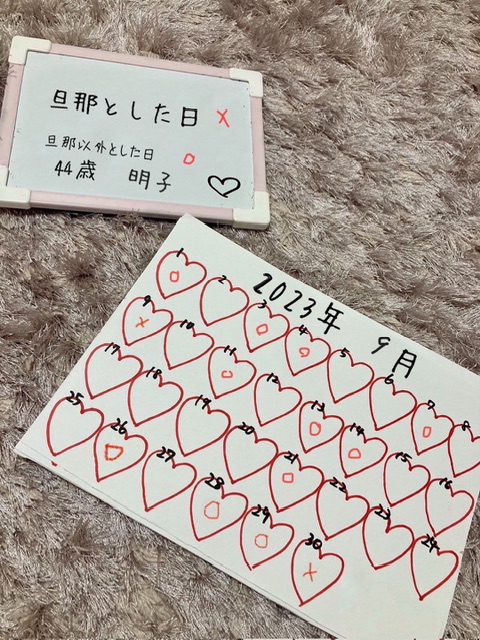 旦那とした日 ×
旦那以外とした日 ○
44歳 明子 ♡
2023年 9月
1 2 3 4 5 6 7 8
9 10 11 12 13 14 15 16
17 18 19 20 21 22 23 24
25 26 27 28 29 30